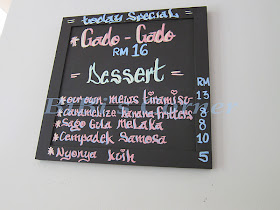 = today Special =
* Gado - Gado
RM 16
= Dessert =
RM
* our own mews tiramisu 13
* Caramelize banana fritters 8
* Sago Gula Melaka 8
* Cempadek Samosa 10
* Nyonya Kuih 5